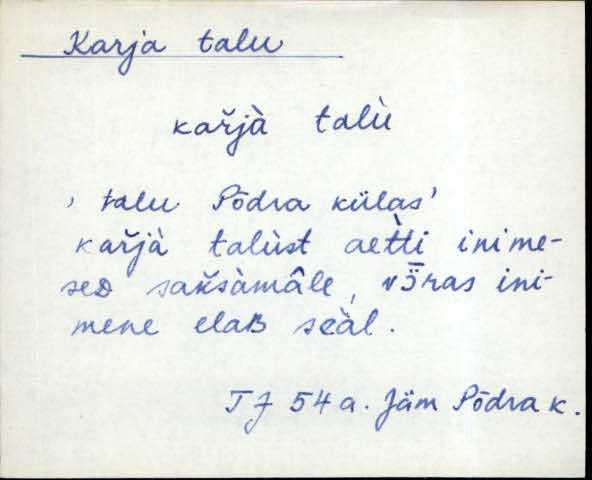 Karja talu
kařjà talù
' talu Põdra külas'
kařjà talùst aetti inime-
seᴅ sak̆sàmâle, vɔ̄̈ras ini-
mene elaʙ seàl.
TJ 54 a. Jäm Põdra k.